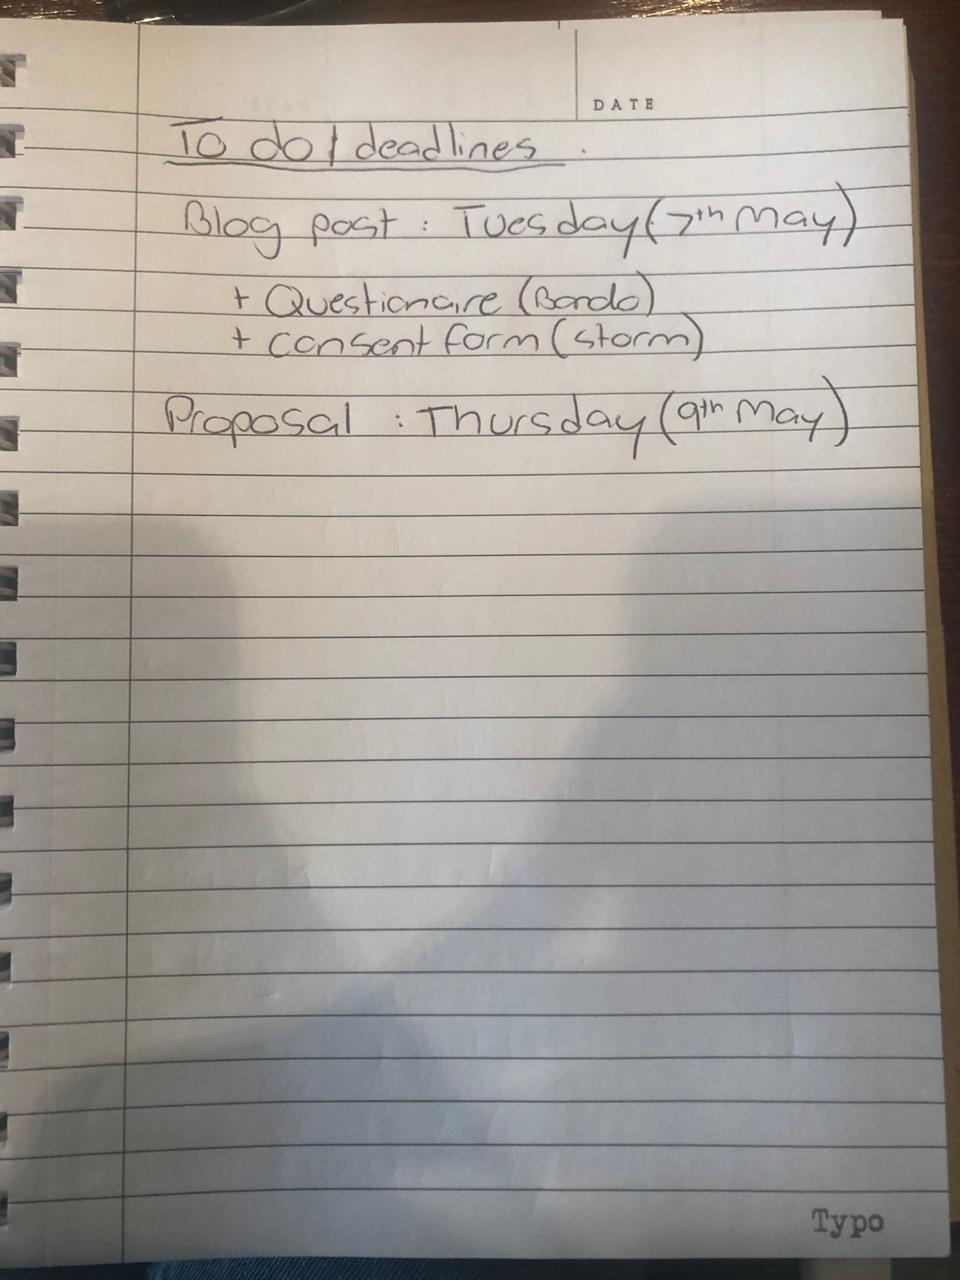 DATE
To do / deadlines .
Blog post : Tuesday (7th May)
+ Questionaire (Bando)
+ consent form (storm)
Proposal : Thursday (9th May)
Typo